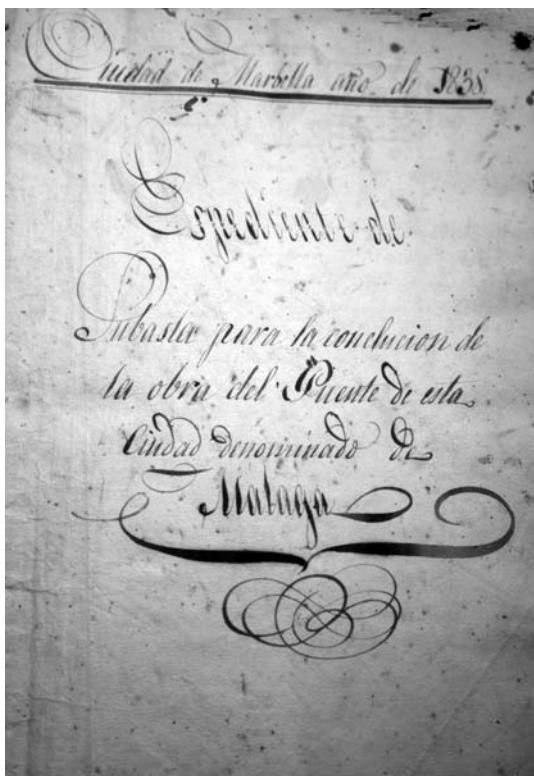 Ciudad de Marbella año de 1838
Espediente de
Subasta para la conclucion de
la obra del Puente de esta
Ciudad denominado de
Malaga